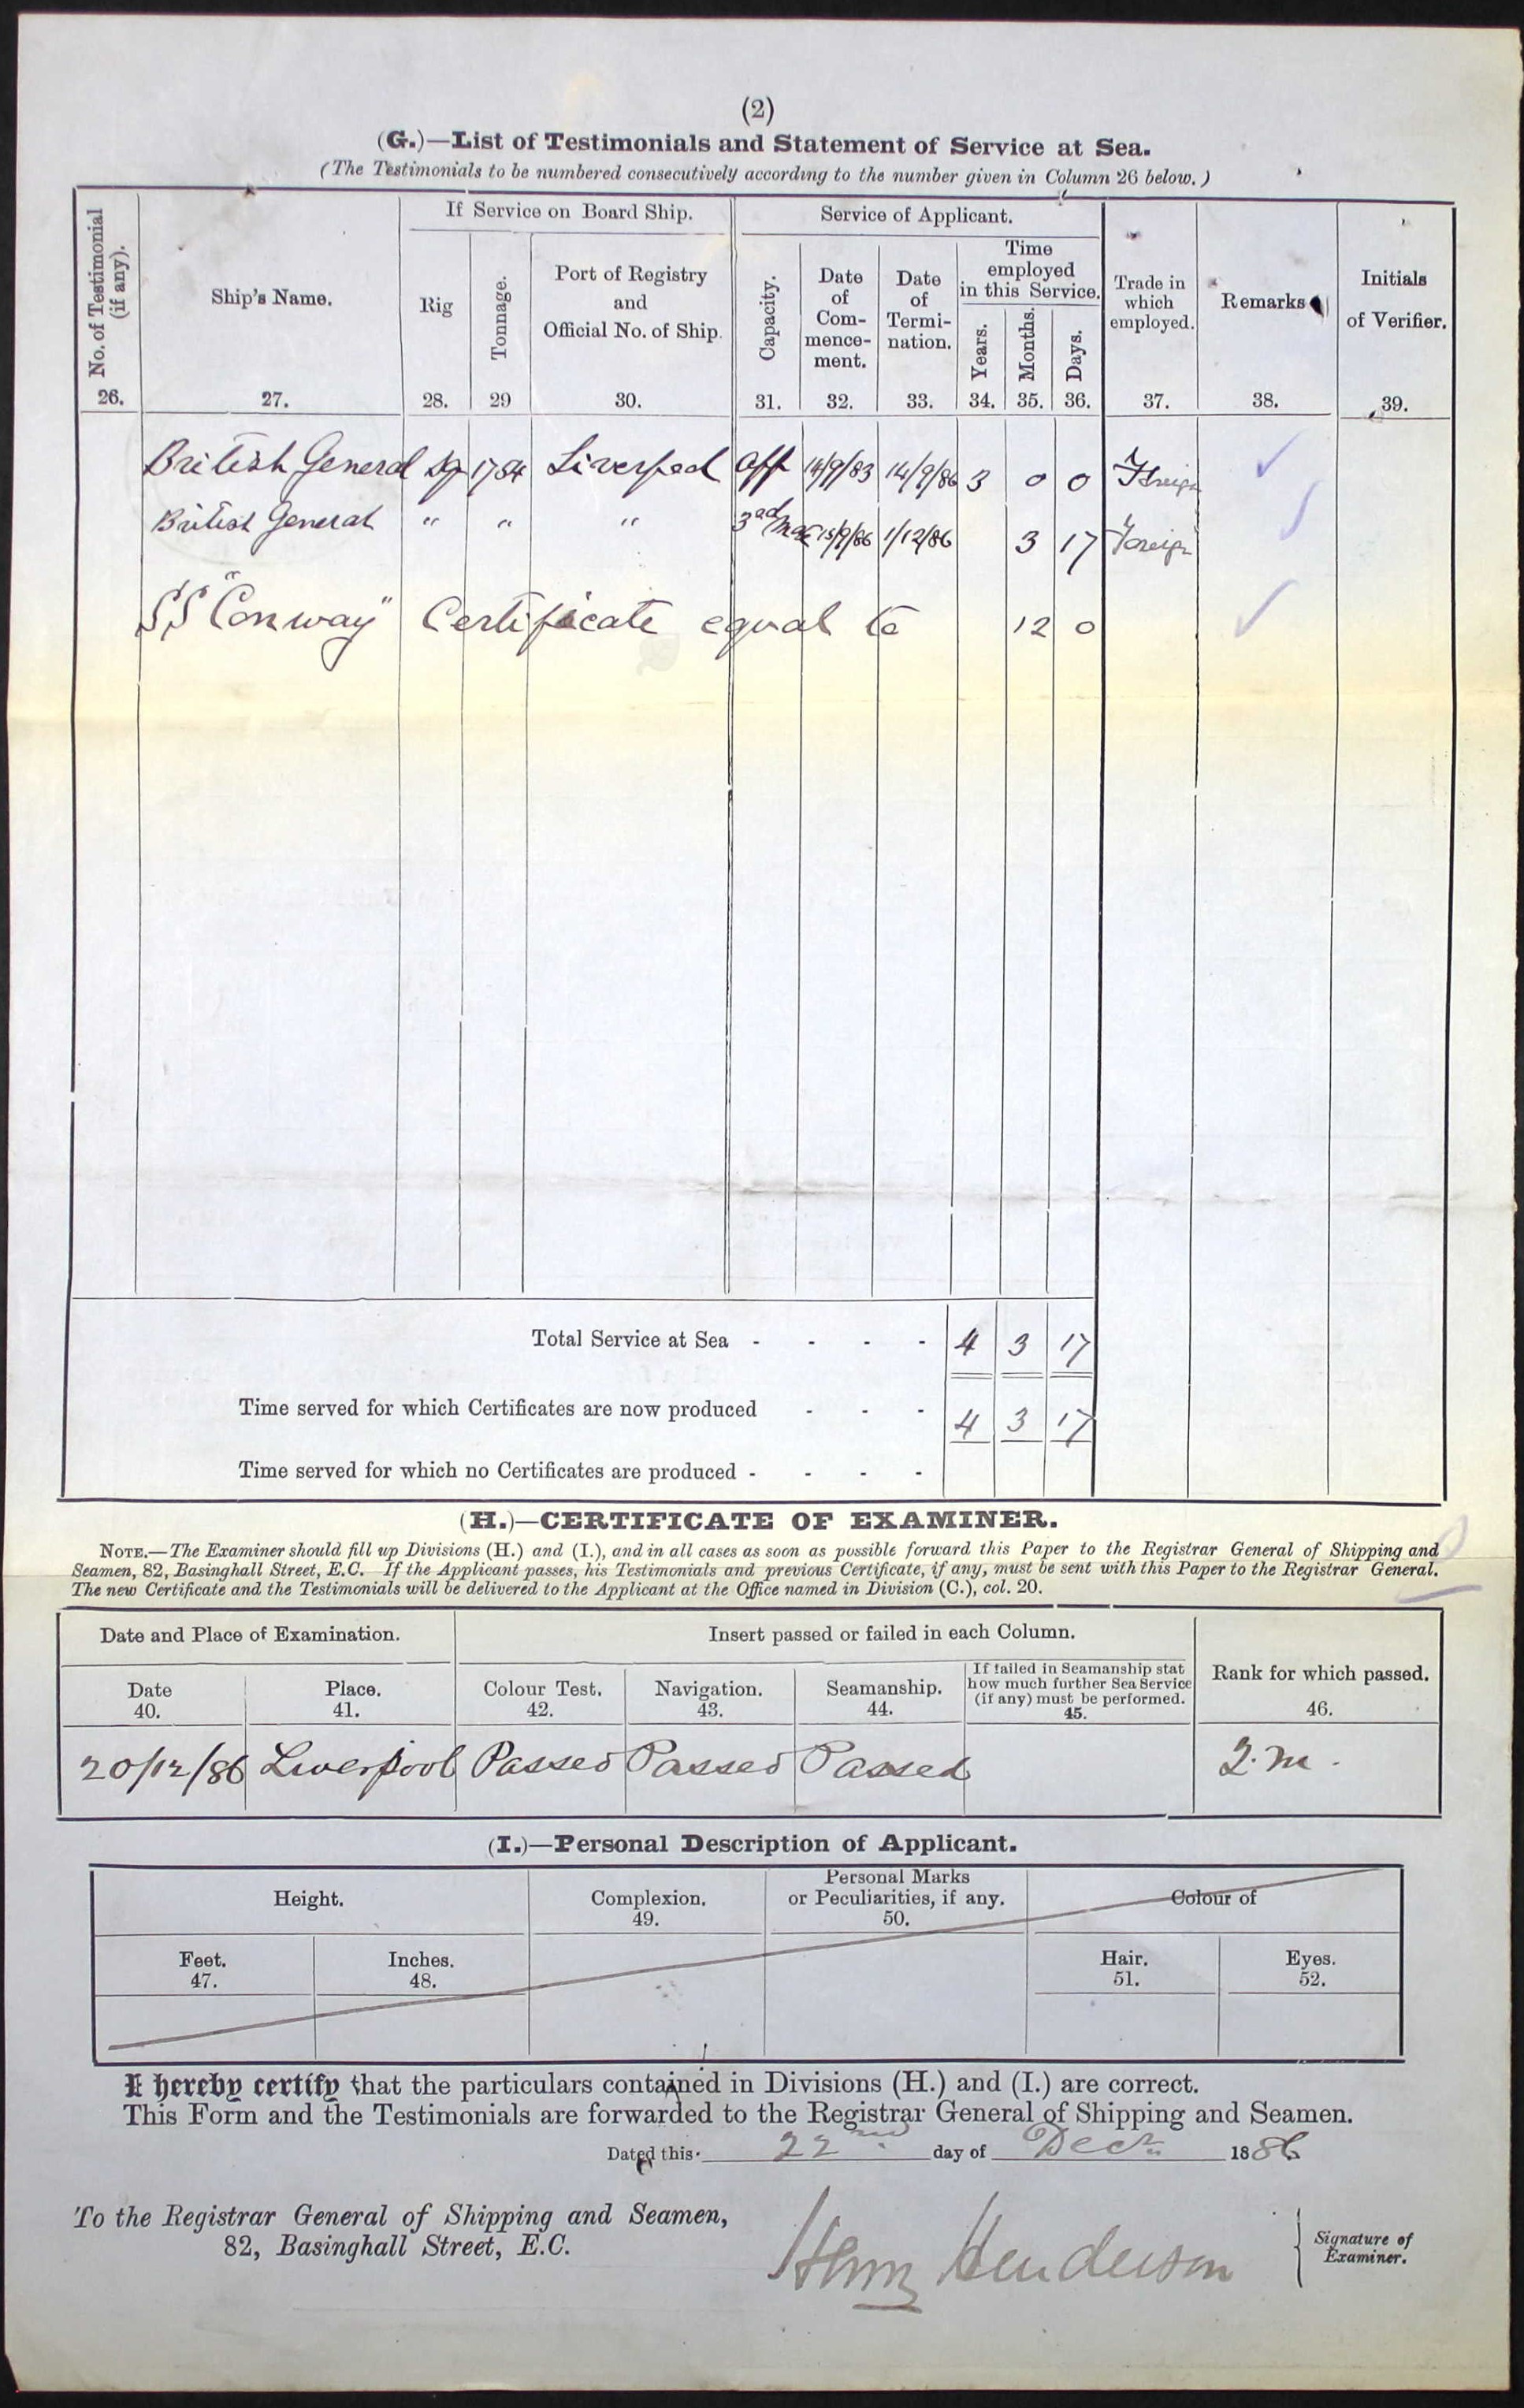 (2)
(G.)—List of Testimonials and Statement of Service at Sea.
(The Testimonials to be numbered consecutively according to the number given in Column 26 below.)
No. of Testimonial (if any). Ship's Name. If Service on Board Ship. Service of Applicant. Trade in which employed. Remarks Initials of Verifier.
Rig Tonnage. Port of Registry and Official No. of Ship. Capacity. Date of Commencement. Date of Termination. Time employed in this Service.
Years. Months. Days.
26. 27. 28. 29 30. 31. 32. 33. 34. 35. 36. 37. 38. 39.
British General 1754 Liverpool App 14/9/83 14/9/86 3 0 0 Foreign
British General " " " 3rd Mate 15/9/86 1/12/86 3 17 Foreign
SS "Conway" Certificate equal to 12 0
Total Service at Sea - - - - 4 3 17
Time served for which Certificates are now produced - - - 4 3 17
Time served for which no Certificates are produced - - - -
(H.)—CERTIFICATE OF EXAMINER.
NOTE.—The Examiner should fill up Divisions (H.) and (I.), and in all cases as soon as possible forward this Paper to the Registrar General of Shipping and
Seamen, 82, Basinghall Street, E.C. If the Applicant passes, his Testimonials and previous Certificate, if any, must be sent with this Paper to the Registrar General.
The new Certificate and the Testimonials will be delivered to the Applicant at the Office named in Division (C.), col. 20.
Date and Place of Examination. Insert passed or failed in each Column. Rank for which passed.
Date Place. Colour Test. Navigation. Seamanship. If failed in Seamanship stat how much further Sea Service (if any) must be performed.
40. 41. 42. 43. 44. 45. 46.
20/12/86 Liverpool Passed Passed Passed 2.m.
(I.)—Personal Description of Applicant.
Height. Complexion. Personal Marks or Peculiarities, if any. Colour of
49. 50.
Feet. Inches. Hair. Eyes.
47. 48. 51. 52.
I hereby certify that the particulars contained in Divisions (H.) and (I.) are correct.
This Form and the Testimonials are forwarded to the Registrar General of Shipping and Seamen.
Dated this 22nd day of Decr 1886
To the Registrar General of Shipping and Seamen,
82, Basinghall Street, E.C.
Henry Henderson
Signature of
Examiner.